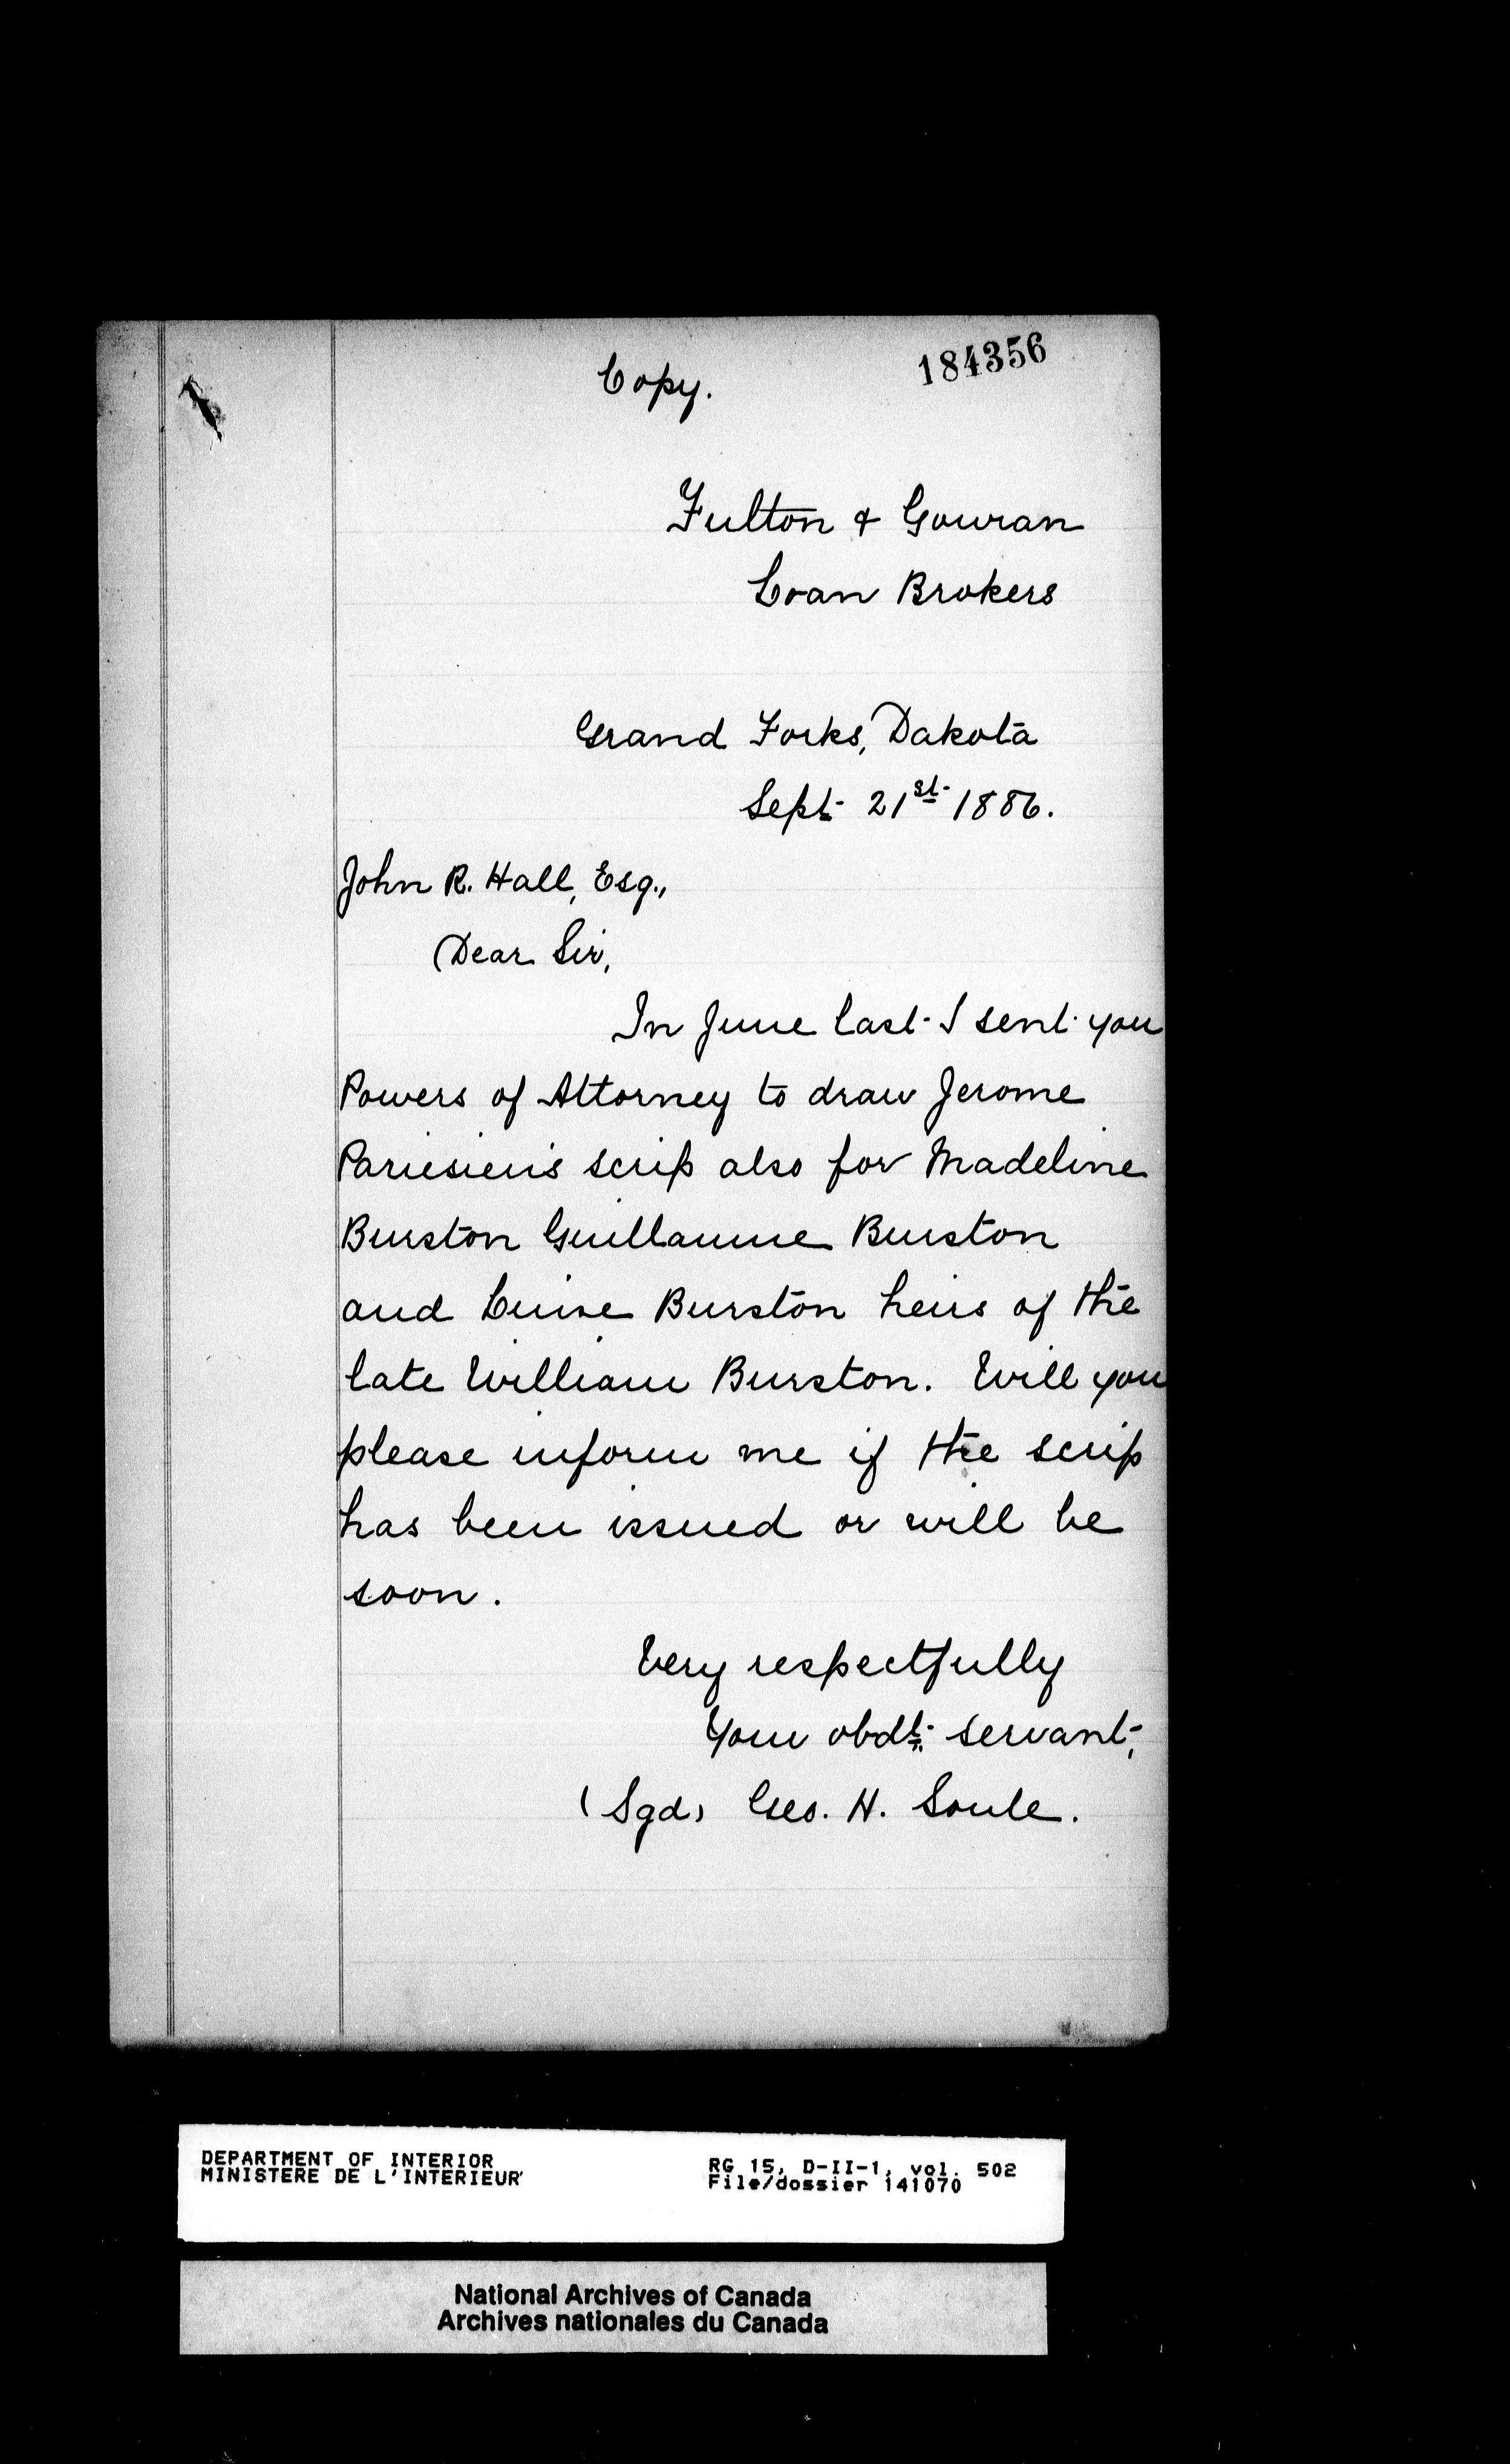 184356
Copy.
Fulton & Gowran
Loan Brokers
Grand Forks, Dakota
Sept. 21st. 1886.
John R. Hall, Esq.,
Dear Sir,
In June last I sent you
Powers of Attorney to draw Jerome
Pariesien's scrip also for Madeline
Burston Guillaume Burston
and Luise Burston heirs of the
late William Burston. Will you
please inform me if the scrip
has been issued or will be
soon.
Very respectfully
Your obdt. servant,
(Sgd) Geo. H. Soule.
DEPARTMENT OF INTERIOR RG 15, D-II-1, vol. 502
MINISTERE DE L'INTERIEUR File/dossier 141070
National Archives of Canada
Archives nationales du Canada